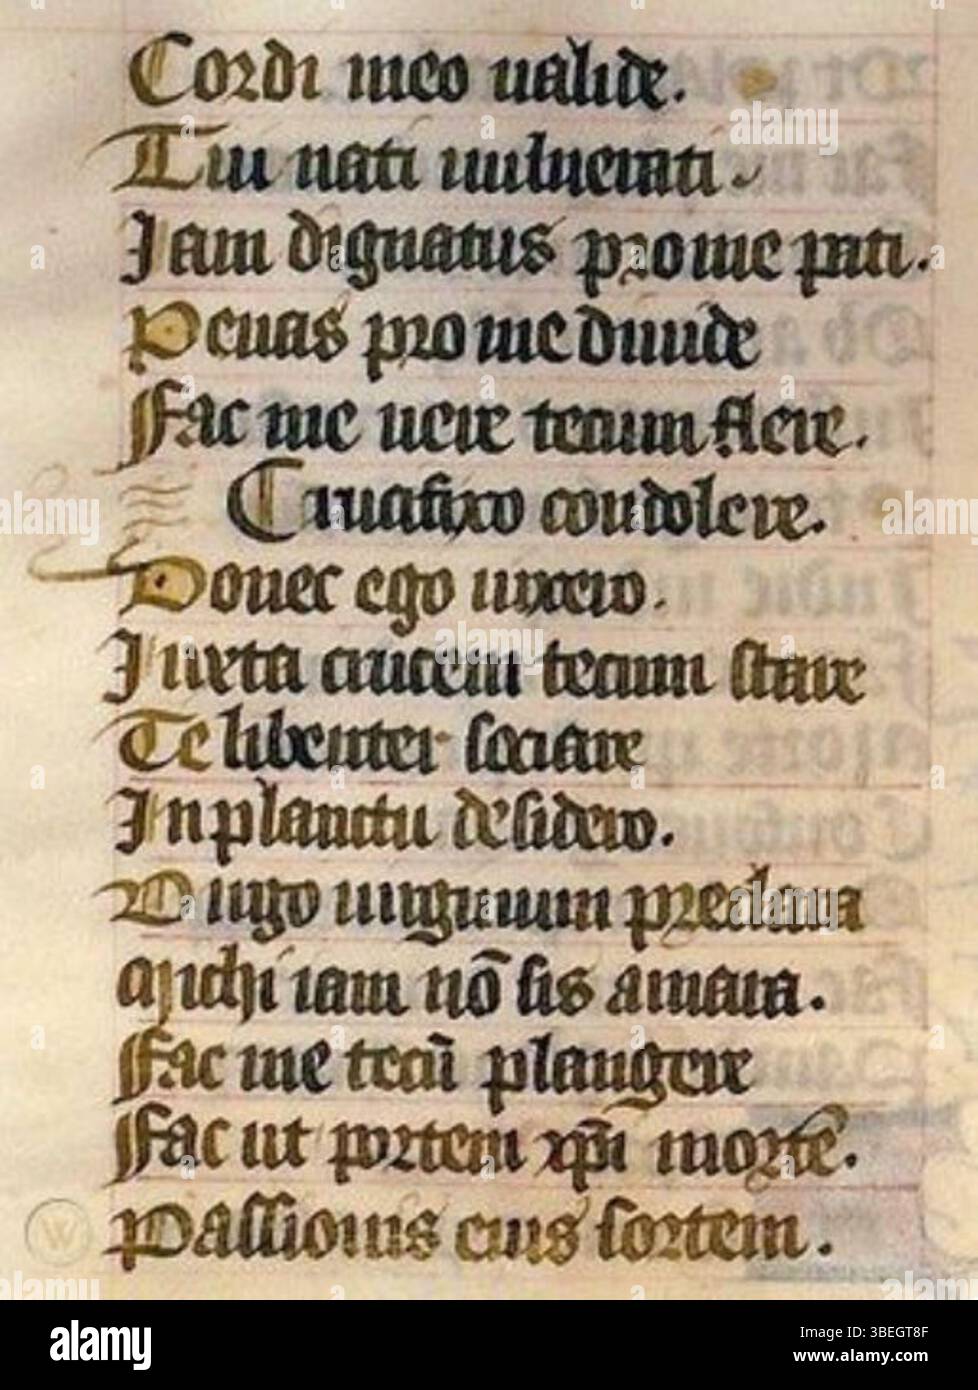 Cordi meo ualide.
Tui nati uulnerati
Iam dignatus pro me pati.
Penas pro me diuide
Fac me uere tecum flere.
Crucifixo condolere.
Donec ego uixero.
Iuxta crucem tecum stare
Te libenter sociare
In planctu desidero.
Uirgo uirginum preclara
Michi iam nō sis amara.
Fac me tecū plangere
Fac ut portem xp̄i mortē.
Passionis eius sortem.
alamy
Image ID: 3BEGT8F
www.alamy.com